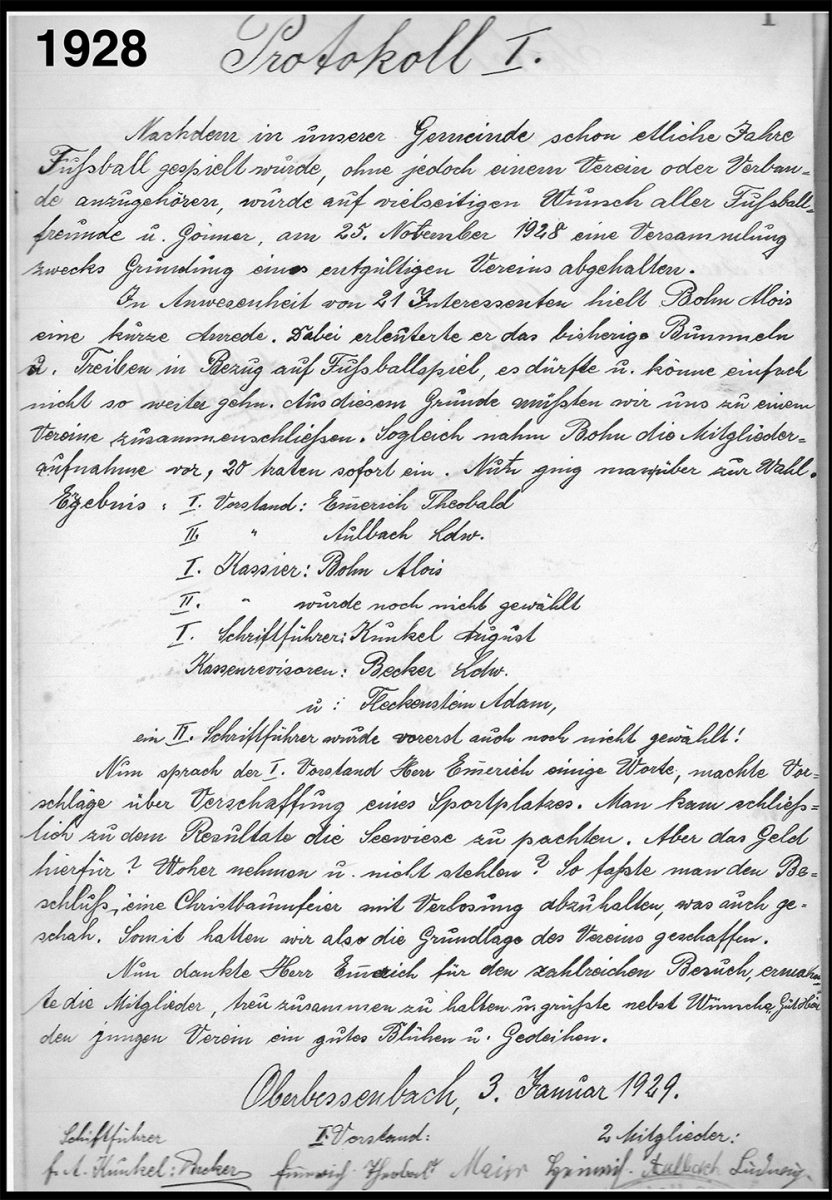 1928
Protokoll I.
Nachdem in unserer Gemeinde schon etliche Jahre
Fußball gespielt wurde, ohne jedoch einem Verein oder Verban-
de anzugehören, wurde auf vielseitigen Wunsch aller Fußball-
freunde u. Gönner, am 25. November 1928 eine Versammlung
zwecks Gründung eines entgültigen Vereins abgehalten.
In Anwesenheit von 21 Interessenten hielt Bohn Alois
eine kurze Anrede. Dabei erleuterte er das bisherige Bummeln
u. Treiben in Bezug auf Fußballspiel, es dürfte u. könne einfach
nicht so weiter gehn. Aus diesem Grunde müßten wir uns zu einem
Vereine zusammenschließen. Sogleich nahm Bohn die Mitglieder-
aufnahme vor, 20 traten sofort ein. Nun ging man über zur Wahl.
Ergebnis: I. Vorstand: Emerich Theobald
II. " Aulbach Ldw.
I. Kassier: Bohn Alois
II. " wurde noch nicht gewählt
I. Schriftführer: Kunkel August
Kassenrevisoren: Becker Ldw.
u: Fleckenstein Adam,
ein II. Schriftführer wurde vorerst auch noch nicht gewählt!
Nun sprach der I. Vorstand Herr Emerich einige Worte, machte Vor-
schläge über Verschaffung eines Sportplatzes. Man kam schließ-
lich zu dem Resultate die Seewiese zu pachten. Aber das Geld
hierfür? Woher nehmen u. nicht stehlen? So faßte man den Be-
schluß, eine Christbaumfeier mit Verlosung abzuhalten, was auch ge-
schah. Somit hatten wir also die Grundlage des Vereins geschaffen.
Nun dankte Herr Emerich für den zahlreichen Besuch, ermahn-
te die Mitglieder, treu zusammen zu halten u. grüßte nebst Wunsche
den jungen Verein ein gutes Blühen u. Gedeihen.
Oberbessenbach, 3. Januar 1929.
Schiftführer I. Vorstand: 2 Mitglieder:
f. A. Kunkel: Becker Emmerich Theobald Maier Heinrich Aulbach Ludwig